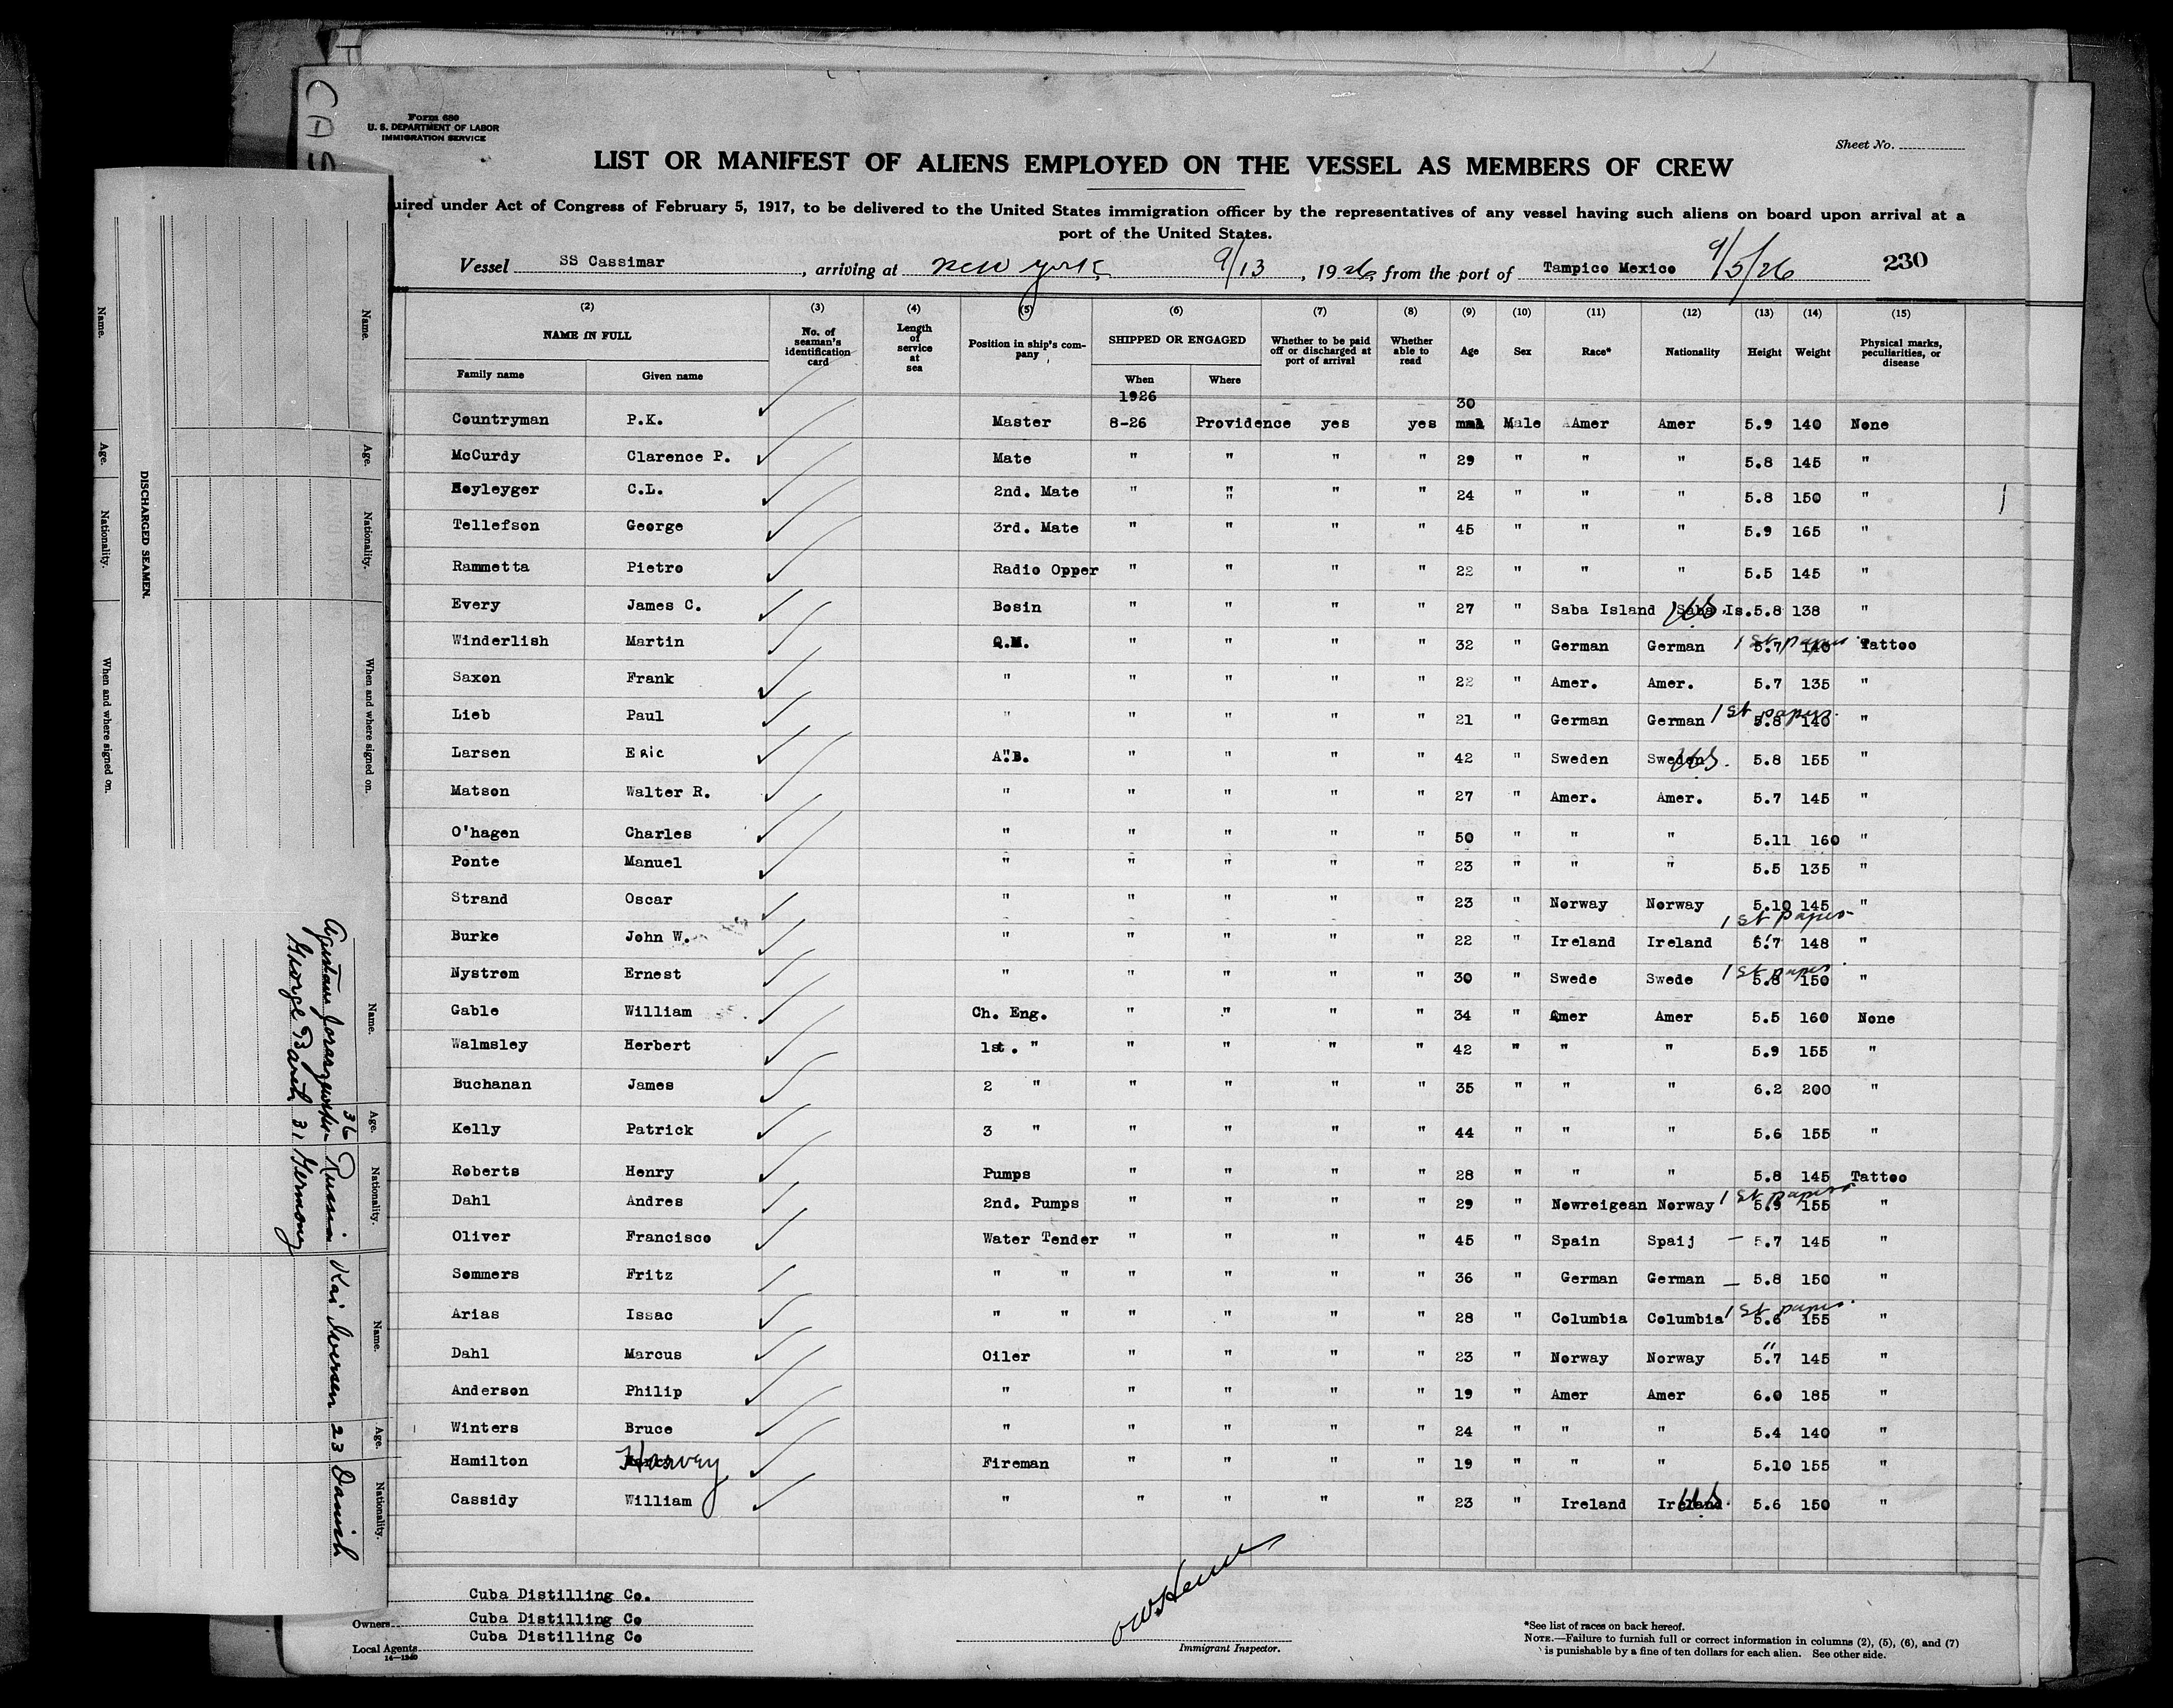 CAS
Form 680
U. S. DEPARTMENT OF LABOR
IMMIGRATION SERVICE
Sheet No.
LIST OR MANIFEST OF ALIENS EMPLOYED ON THE VESSEL AS MEMBERS OF CREW
uired under Act of Congress of February 5, 1917, to be delivered to the United States immigration officer by the representatives of any vessel having such aliens on board upon arrival at a
port of the United States.
Vessel SS Cassimar, arriving at New York 9/13, 1926, from the port of Tampico Mexico 9/5/26 230
(2) (3) (4) (5) (6) (7) (8) (9) (10) (11) (12) (13) (14) (15)
NAME IN FULL No. of seaman's identification card Length of service at sea Position in ship's company SHIPPED OR ENGAGED Whether to be paid off or discharged at port of arrival Whether able to read Age Sex Race* Nationality Height Weight Physical marks, peculiarities, or disease
Family name Given name When Where
1926
Countryman P.K. Master 8-26 Providence yes yes 30 Male Amer Amer 5.9 140 None
McCurdy Clarence P. Mate " " " " 29 " " " 5.8 145 "
Heyleyger C.L. 2nd. Mate " " " " 24 " " " 5.8 150 "
Tellefson George 3rd. Mate " " " " 45 " " " 5.9 165 "
Rammetta Pietro Radio Opper " " " " 22 " " " 5.5 145 "
Every James C. Bosin " " " " 27 " Saba Island Saba Is. US. 5.8 138 "
Winderlish Martin Q.M. " " " " 32 " German German 1st papers 5.7 140 Tattoo
Saxon Frank " " " " " 22 " Amer. Amer. 5.7 135 "
Lieb Paul " " " " " 21 " German German 1st papers. 5.8 140 "
Larsen Eric A.B. " " " " 42 " Sweden Sweden US. 5.8 155 "
Matson Walter R. " " " " " 27 " Amer. Amer. 5.7 145 "
O'hagen Charles " " " " " 50 " " " 5.11 160 "
Ponte Manuel " " " " " 23 " " " 5.5 135 "
Strand Oscar " " " " " 23 " Norway Norway 5.10 145 "
Burke John W. " " " " " 22 " Ireland Ireland 1st papers 5.7 148 "
Nystrom Ernest " " " " " 30 " Swede Swede 1st papers 5.8 150 "
Gable William Ch. Eng. " " " " 34 " Amer Amer 5.5 160 None
Walmsley Herbert 1st. " " " " " 42 " " " 5.9 155 "
Buchanan James 2 " " " " " 35 " " " 6.2 200 "
Kelly Patrick 3 " " " " " 44 " " " 5.6 155 "
Roberts Henry Pumps " " " " 28 " " " 5.8 145 Tattoo
Dahl Andres 2nd. Pumps " " " " 29 " Nowreigean Norway 1st papers 5.9 155 "
Oliver Francisco Water Tender " " " " 45 " Spain Spaij – 5.7 145 "
Sommers Fritz " " " " " " 36 " German German – 5.8 150 "
Arias Issac " " " " " " 28 " Columbia Columbia 1st papers. 5.6 155 "
Dahl Marcus Oiler " " " " 23 " Norway Norway " 5.7 145 "
Anderson Philip " " " " " 19 " Amer Amer 6.0 185 "
Winters Bruce " " " " " 24 " " " 5.4 140 "
Hamilton Harvey Fireman " " " " 19 " " " 5.10 155 "
Cassidy William " " " " " 23 " Ireland Ireland US. 5.6 150 "
Cuba Distilling Co.
Owners Cuba Distilling Co
Local Agents Cuba Distilling Co
14—1240
Immigrant Inspector.
*See list of races on back hereof.
NOTE.—Failure to furnish full or correct information in columns (2), (5), (6), and (7)
is punishable by a fine of ten dollars for each alien. See other side.
DISCHARGED SEAMEN.
Name. Age. Nationality. When and where signed on.
Name. Age. Nationality. When and where signed on.
Name. Age. Nationality. Name. Age. Nationality.
36 Russian Kai Iversen 23 Danish
George Barth 31 Germany